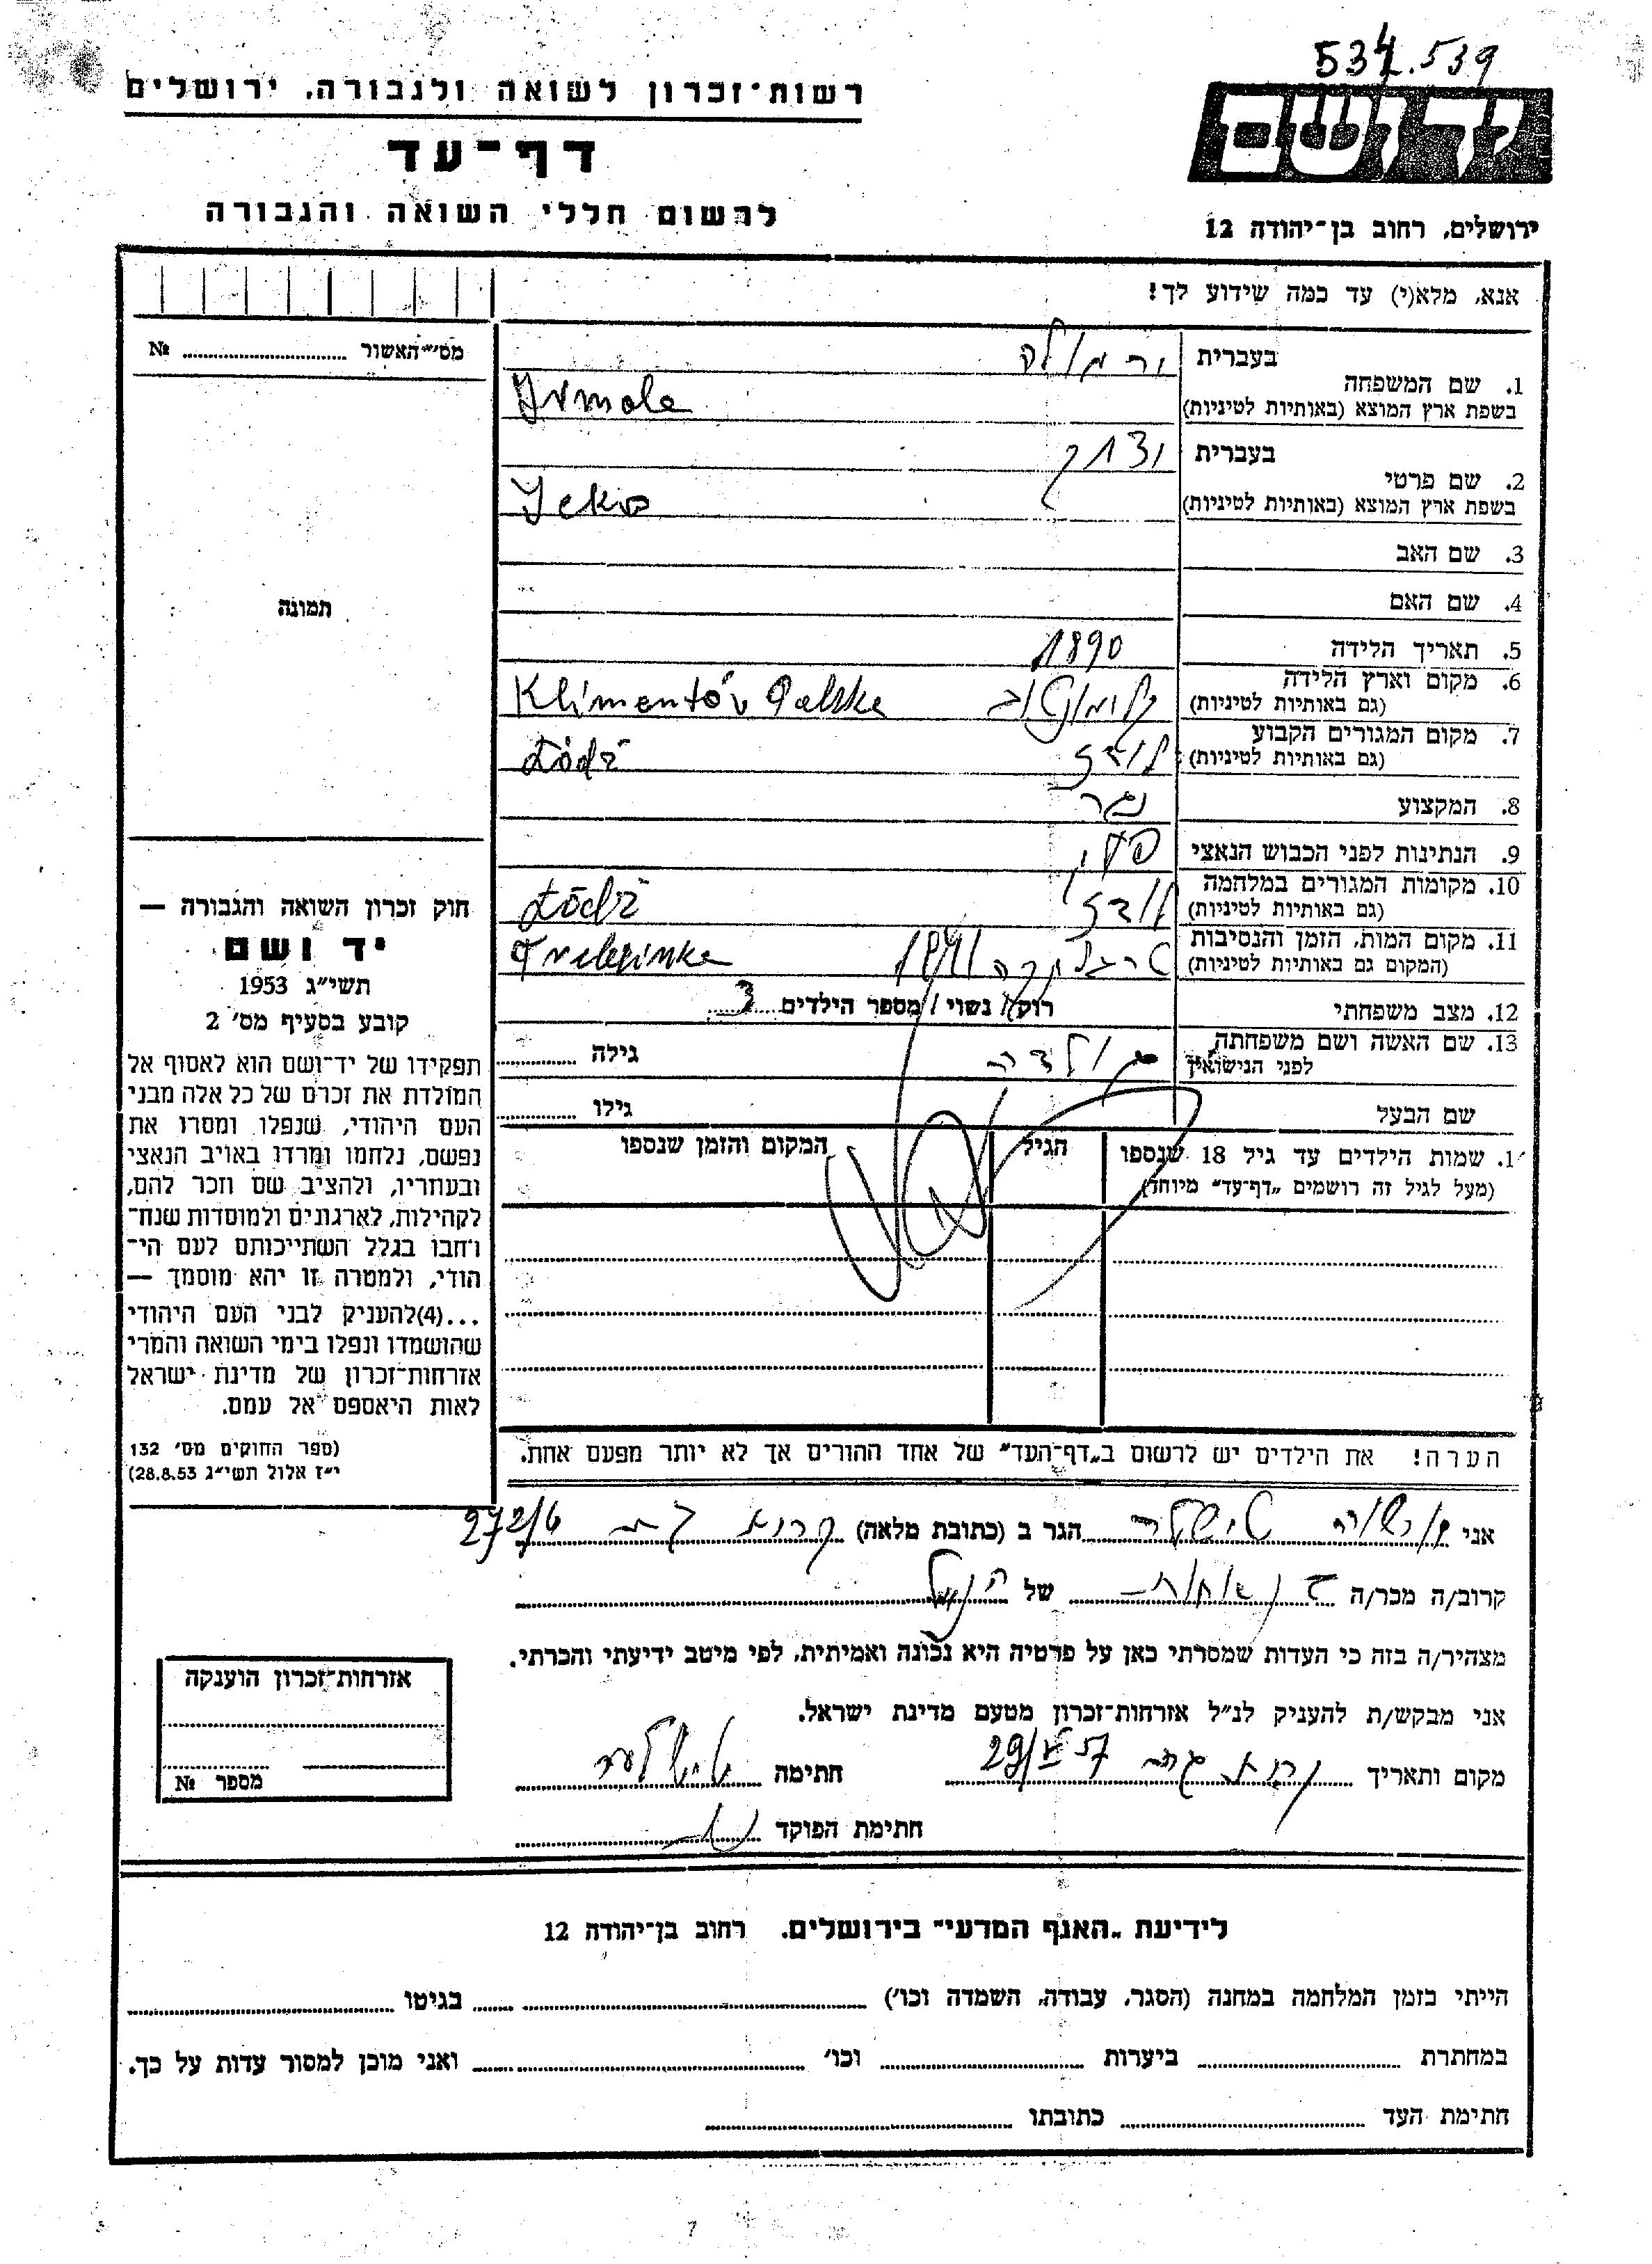 534.539
רשות-זכרון לשואה ולגבורה, ירושלים
דף-עד
לרשום חללי השואה והגבורה
יד ושם
ירושלים, רחוב בן-יהודה 12
אנא, מלא(י) עד כמה שידוע לך!
מס׳ האשור № 
1. שם המשפחה בעברית ירמולה
בשפת ארץ המוצא (באותיות לטיניות) Jrmole
2. שם פרטי בעברית יצחק
בשפת ארץ המוצא (באותיות לטיניות)
3. שם האב
4. שם האם
תמונה
5. תאריך הלידה 1890
6. מקום וארץ הלידה
(גם באותיות לטיניות) קלימונטוב Klimentów Polska
7. מקום המגורים הקבוע
(גם באותיות לטיניות) לודז Łódź
8. המקצוע נגר
9. הנתינות לפני הכבוש הנאצי פולני
10. מקומות המגורים במלחמה
(גם באותיות לטיניות) לודז Łódź
11. מקום המות, הזמן והנסיבות
(המקום גם באותיות לטיניות) טרבלינקה 1941
12. מצב משפחתי רוק/ נשוי/ מספר הילדים 3
13. שם האשה ושם משפחתה
לפני הנישואין גילה
שם הבעל גילו
1. שמות הילדים עד גיל 18 שנספו הגיל המקום והזמן שנספו
(מעל לגיל זה רושמים „דף-עד״ מיוחד)
הערה! את הילדים יש לרשום ב„דף-העד״ של אחד ההורים אך לא יותר מפעם אחת.
חוק זכרון השואה והגבורה —
יד ושם
תשי״ג 1953
קובע בסעיף מס׳ 2
תפקידו של יד-ושם הוא לאסוף אל
המולדת את זכרם של כל אלה מבני
העם היהודי, שנפלו ומסרו את
נפשם, נלחמו ומרדו באויב הנאצי
ובעוזריו, ולהציב שם וזכר להם,
לקהילות, לארגונים ולמוסדות שנח-
רבו בגלל השתייכותם לעם הי-
הודי, ולמטרה זו יהא מוסמך —
...(4)להעניק לבני העם היהודי
שהושמדו ונפלו בימי השואה והמרי
אזרחות-זכרון של מדינת ישראל
לאות היאספם אל עמם.
(ספר החוקים מס׳ 132
י״ז אלול תשי״ג 28.8.53)
אני טישלר הגר ב (כתובת מלאה) קרית גת 272/6
קרוב/ה מכר/ה בן אחות של הנ״ל
מצהיר/ה בזה כי העדות שמסרתי כאן על פרטיה היא נכונה ואמיתית, לפי מיטב ידיעתי והכרתי.
אני מבקש/ת להעניק לנ״ל אזרחות-זכרון מטעם מדינת ישראל.
מקום ותאריך קרית גת חתימה טישלר
חתימת הפוקד
אזרחות-זכרון הוענקה
מספר №
לידיעת „האגף המדעי״ בירושלים, רחוב בן-יהודה 12
הייתי בזמן המלחמה במחנה (הסגר, עבודה, השמדה וכו׳) בגיטו
במחתרת ביערות וכו׳ ואני מוכן למסור עדות על כך.
חתימת העד כתובתו